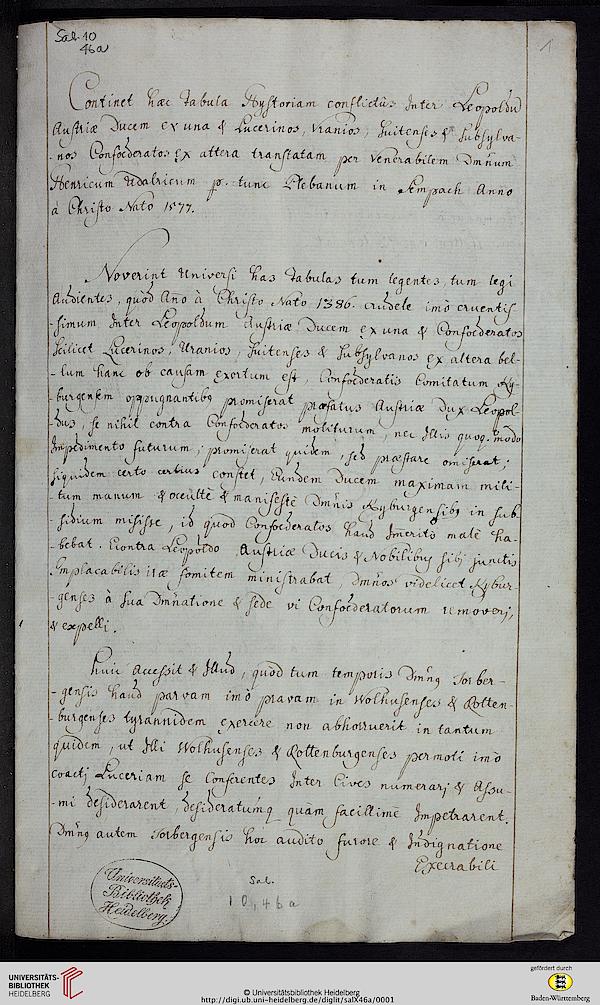 Sal. 10
46a
1
Continet hæc Tabula Hystoriam conflictûs Inter Leopoldũ
Austriæ Ducem ex una & Lucerinos, Vranios, Suitenses & Subsylva-
-nos Confœderatos ex altera translatam per Venerabilem Dmñum
Henricum Udalricum p. tunc Plebanum in Ampach Anno
à Christo Nato 1577.
Noverint Universi has Tabulas tum legentes, tum legi
Audientes, quòd Año à Christo Nato 1386. crudele imò cruentis-
-simum Inter Leopoldum Austriæ Ducem ex una & Confœderatos
scilicet Lucerinos, Uranios, Suitenses & Subsylvanos ex altera bel-
-lum hanc ob causam exortum est, Confœderatis Comitatum Ky-
-burgensem oppugnantibq promiserat præfatus Austriæ Dux Leopol-
-dus, se nihil contra Confœderatos moliturum, nec Illis quoq. modo
Impedimento futurum; promiserat quidem, sed præstare omiserat;
siquidem certo certius constet, Eundem Ducem maximam mili-
-tum manum & occultè & manifestè Dmñis Kyburgensibq in sub-
-sidium misisse, id quod Confœderatos haud Imeritò malè ha-
-bebat. Econtra Leopoldo Austriæ Ducis & Nobilibus sibj junctis
Implacabilis iræ fomitem ministrabat, Dmños videlicet Kybur-
-genses à sua Dmñatione & sede vi Confœderatorum removerj,
& expelli.
Huic Accessit & Illud, quòd tum temporis Dmñq Torber-
-gensis haud parvam imò pravam in Wolhusenses & Rotten-
-burgenses tyrannidem exercere non abhorruerit in tantum
quidem, ut Illi Wolhusenses & Rottenburgenses permoti imò
coactj Luceriam se Conferentes Inter Cives numerarj & Assu-
-mi desiderarent, desideratumq quàm facillimè Impetrarent.
Dmñq autem Torbergensis hoc audito furore & Indignatione
Execrabili
Universitaets-
Bibliothek
Heidelberg.
Sal.
10,46a
UNIVERSITÄTS-
BIBLIOTHEK
HEIDELBERG
© Universitätsbibliothek Heidelberg
http://digi.ub.uni-heidelberg.de/diglit/salX46a/0001
gefördert durch
Baden-Württemberg